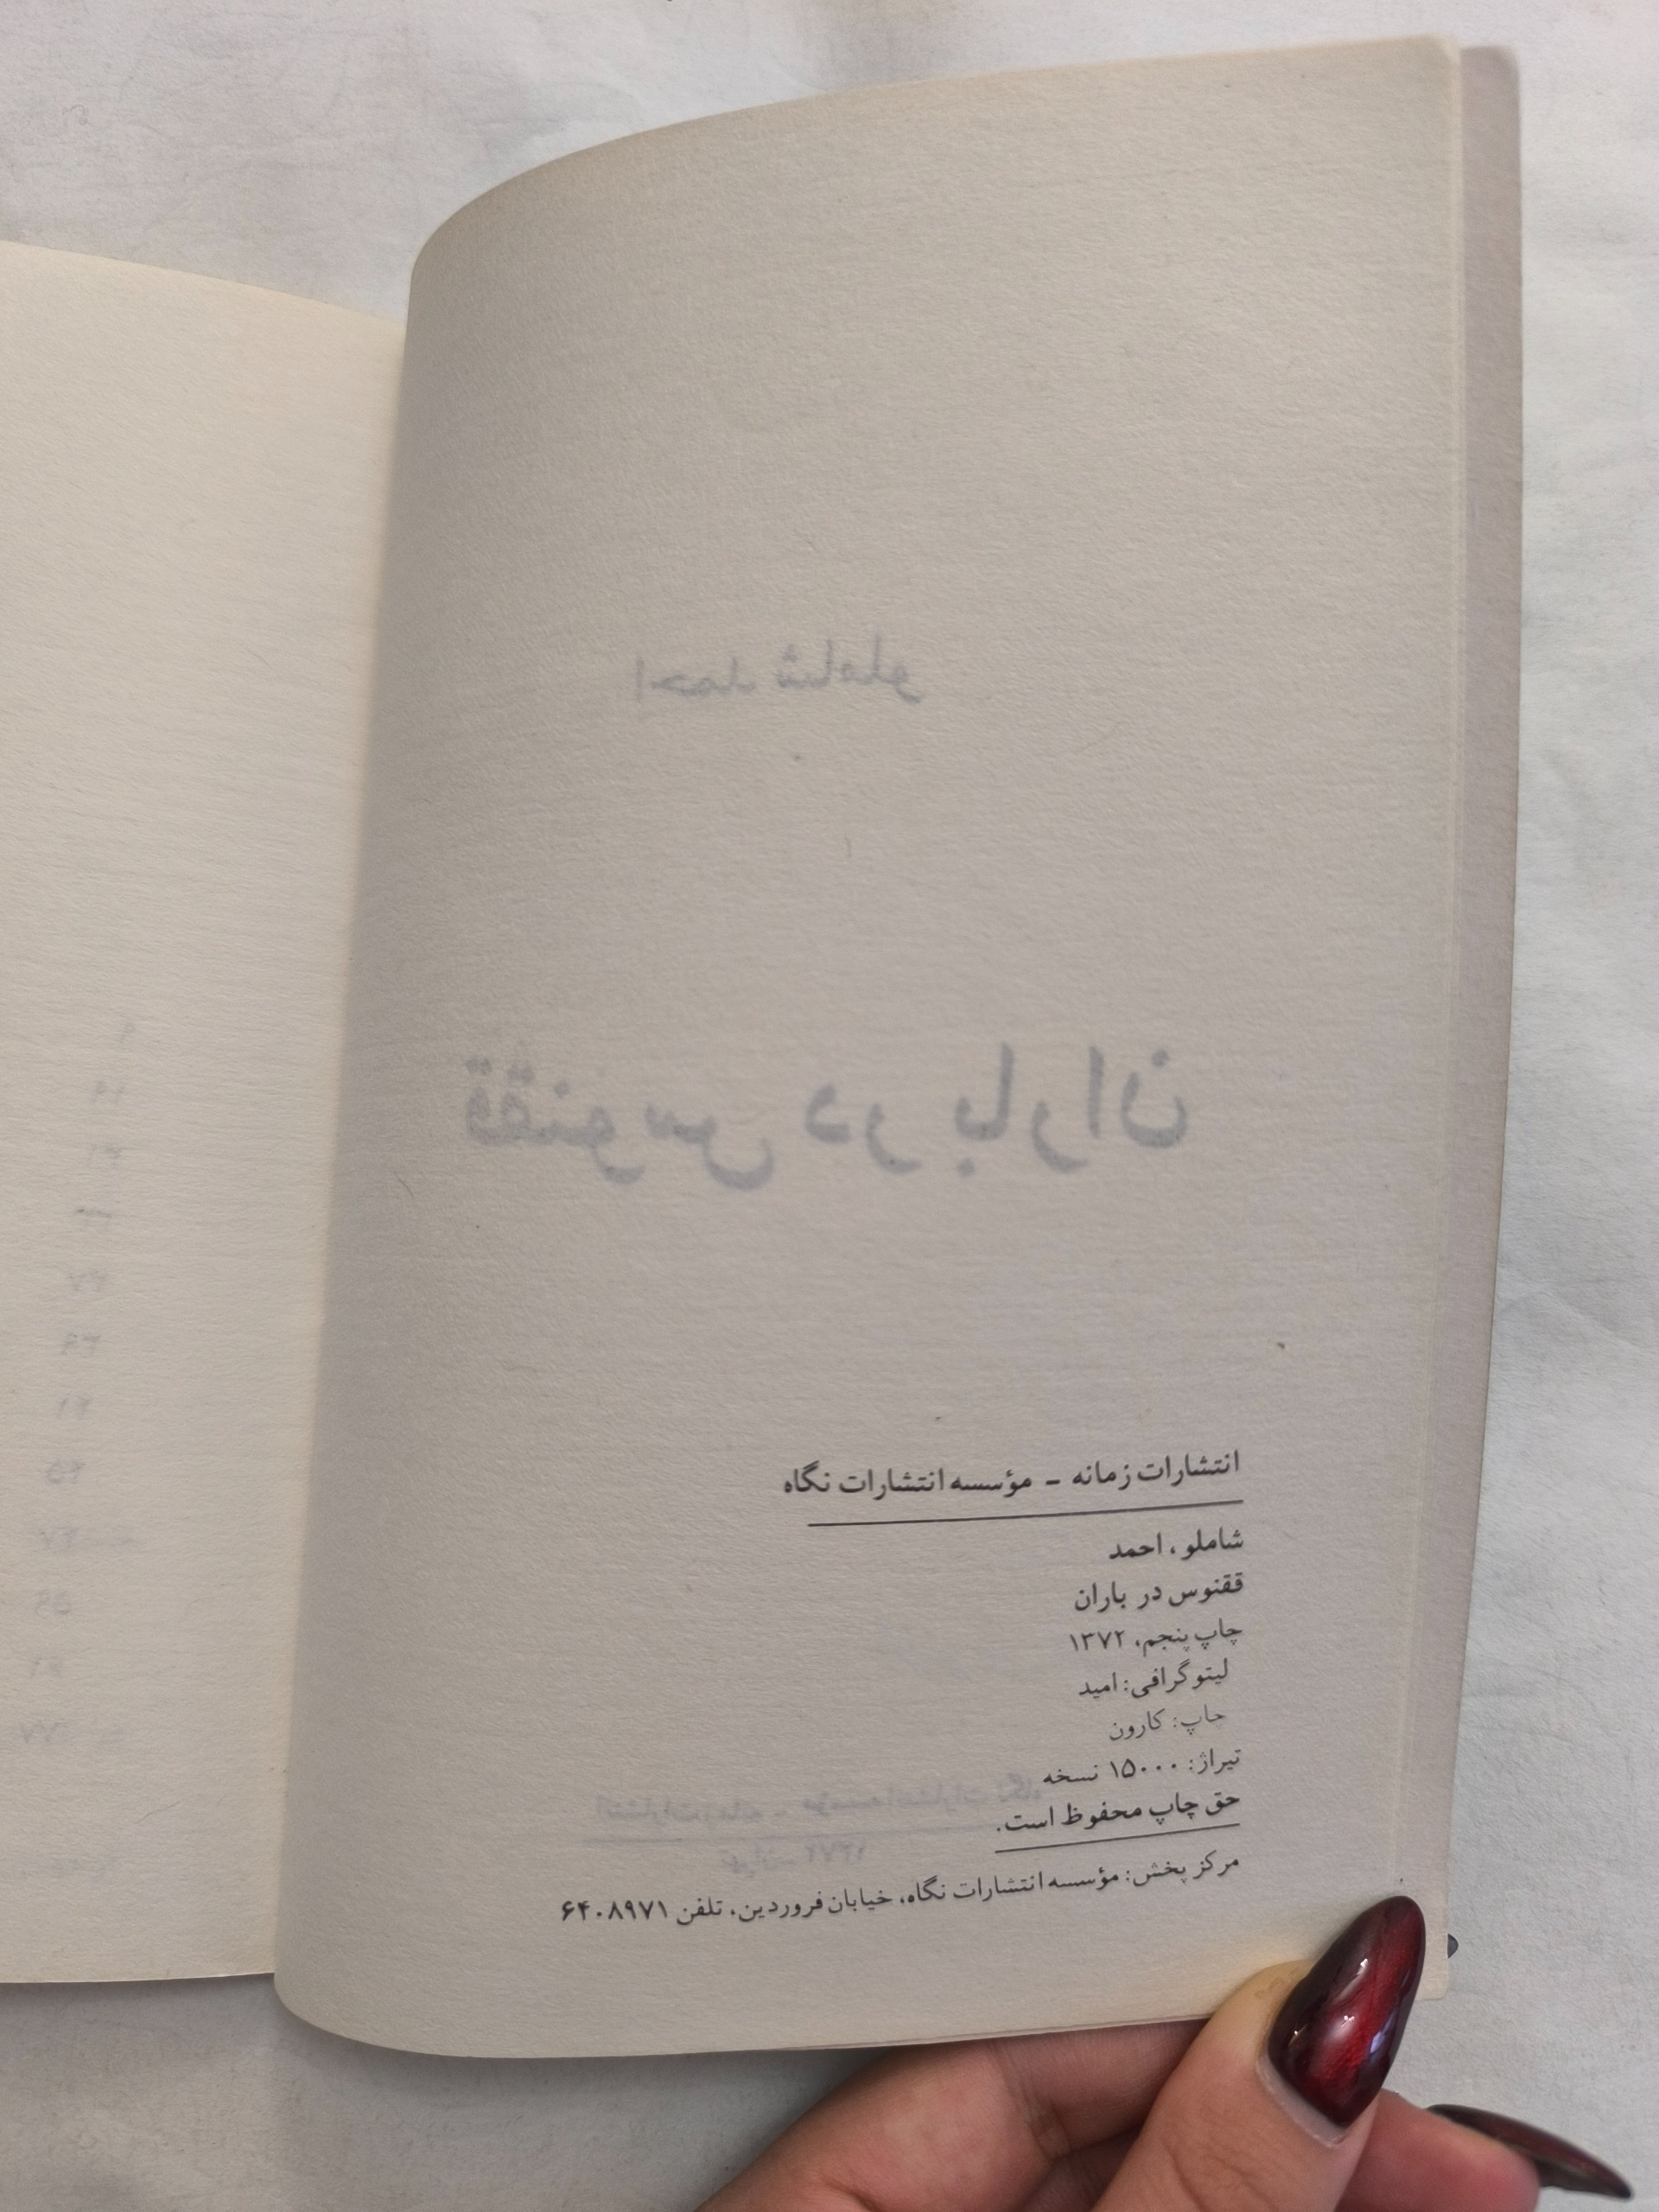 احمد شاملو
ققنوس در باران
انتشارات زمانه - مؤسسه انتشارات نگاه
شاملو، احمد
ققنوس در باران
چاپ پنجم، ۱۳۷۲
لیتوگرافی: امید
چاپ: کارون
تیراژ: ۱۵۰۰۰ نسخه
حق چاپ محفوظ است.
مرکز پخش: مؤسسه انتشارات نگاه، خیابان فروردین، تلفن ۶۴۰۸۹۷۱